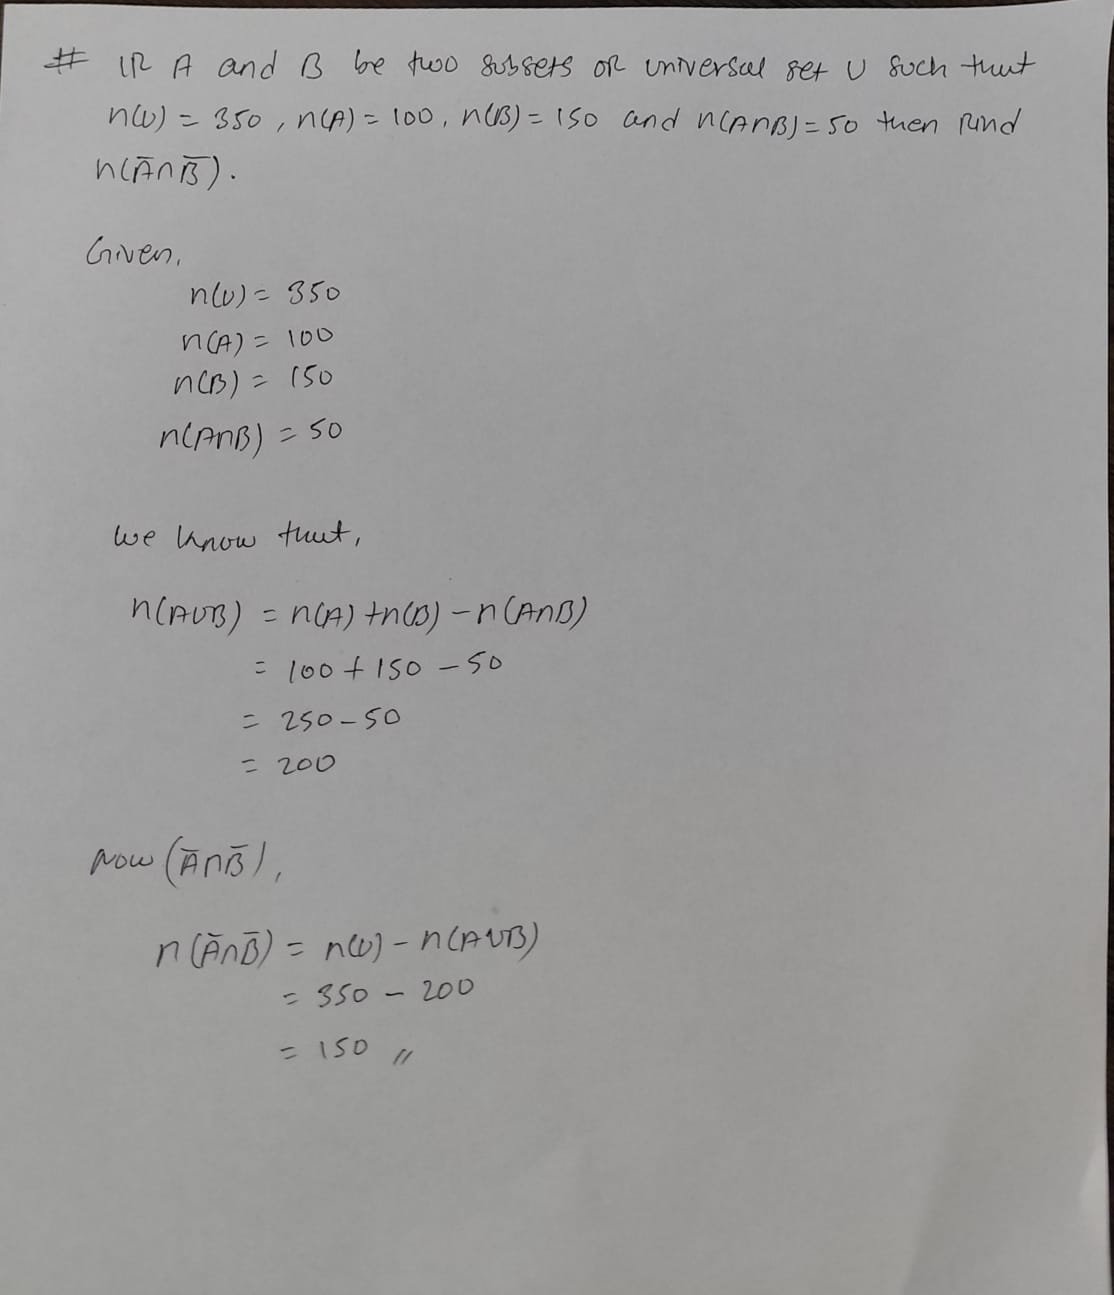 # If A and B be two subsets of universal set U such that
n(U) = 350, n(A) = 100, n(B) = 150 and n(A∩B) = 50 then find
n(A̅∩B̅).
Given,
n(U) = 350
n(A) = 100
n(B) = 150
n(A∩B) = 50
we know that,
n(A∪B) = n(A) + n(B) - n(A∩B)
= 100 + 150 - 50
= 250 - 50
= 200
Now (A̅∩B̅),
n(A̅∩B̅) = n(U) - n(A∪B)
= 350 - 200
= 150 //